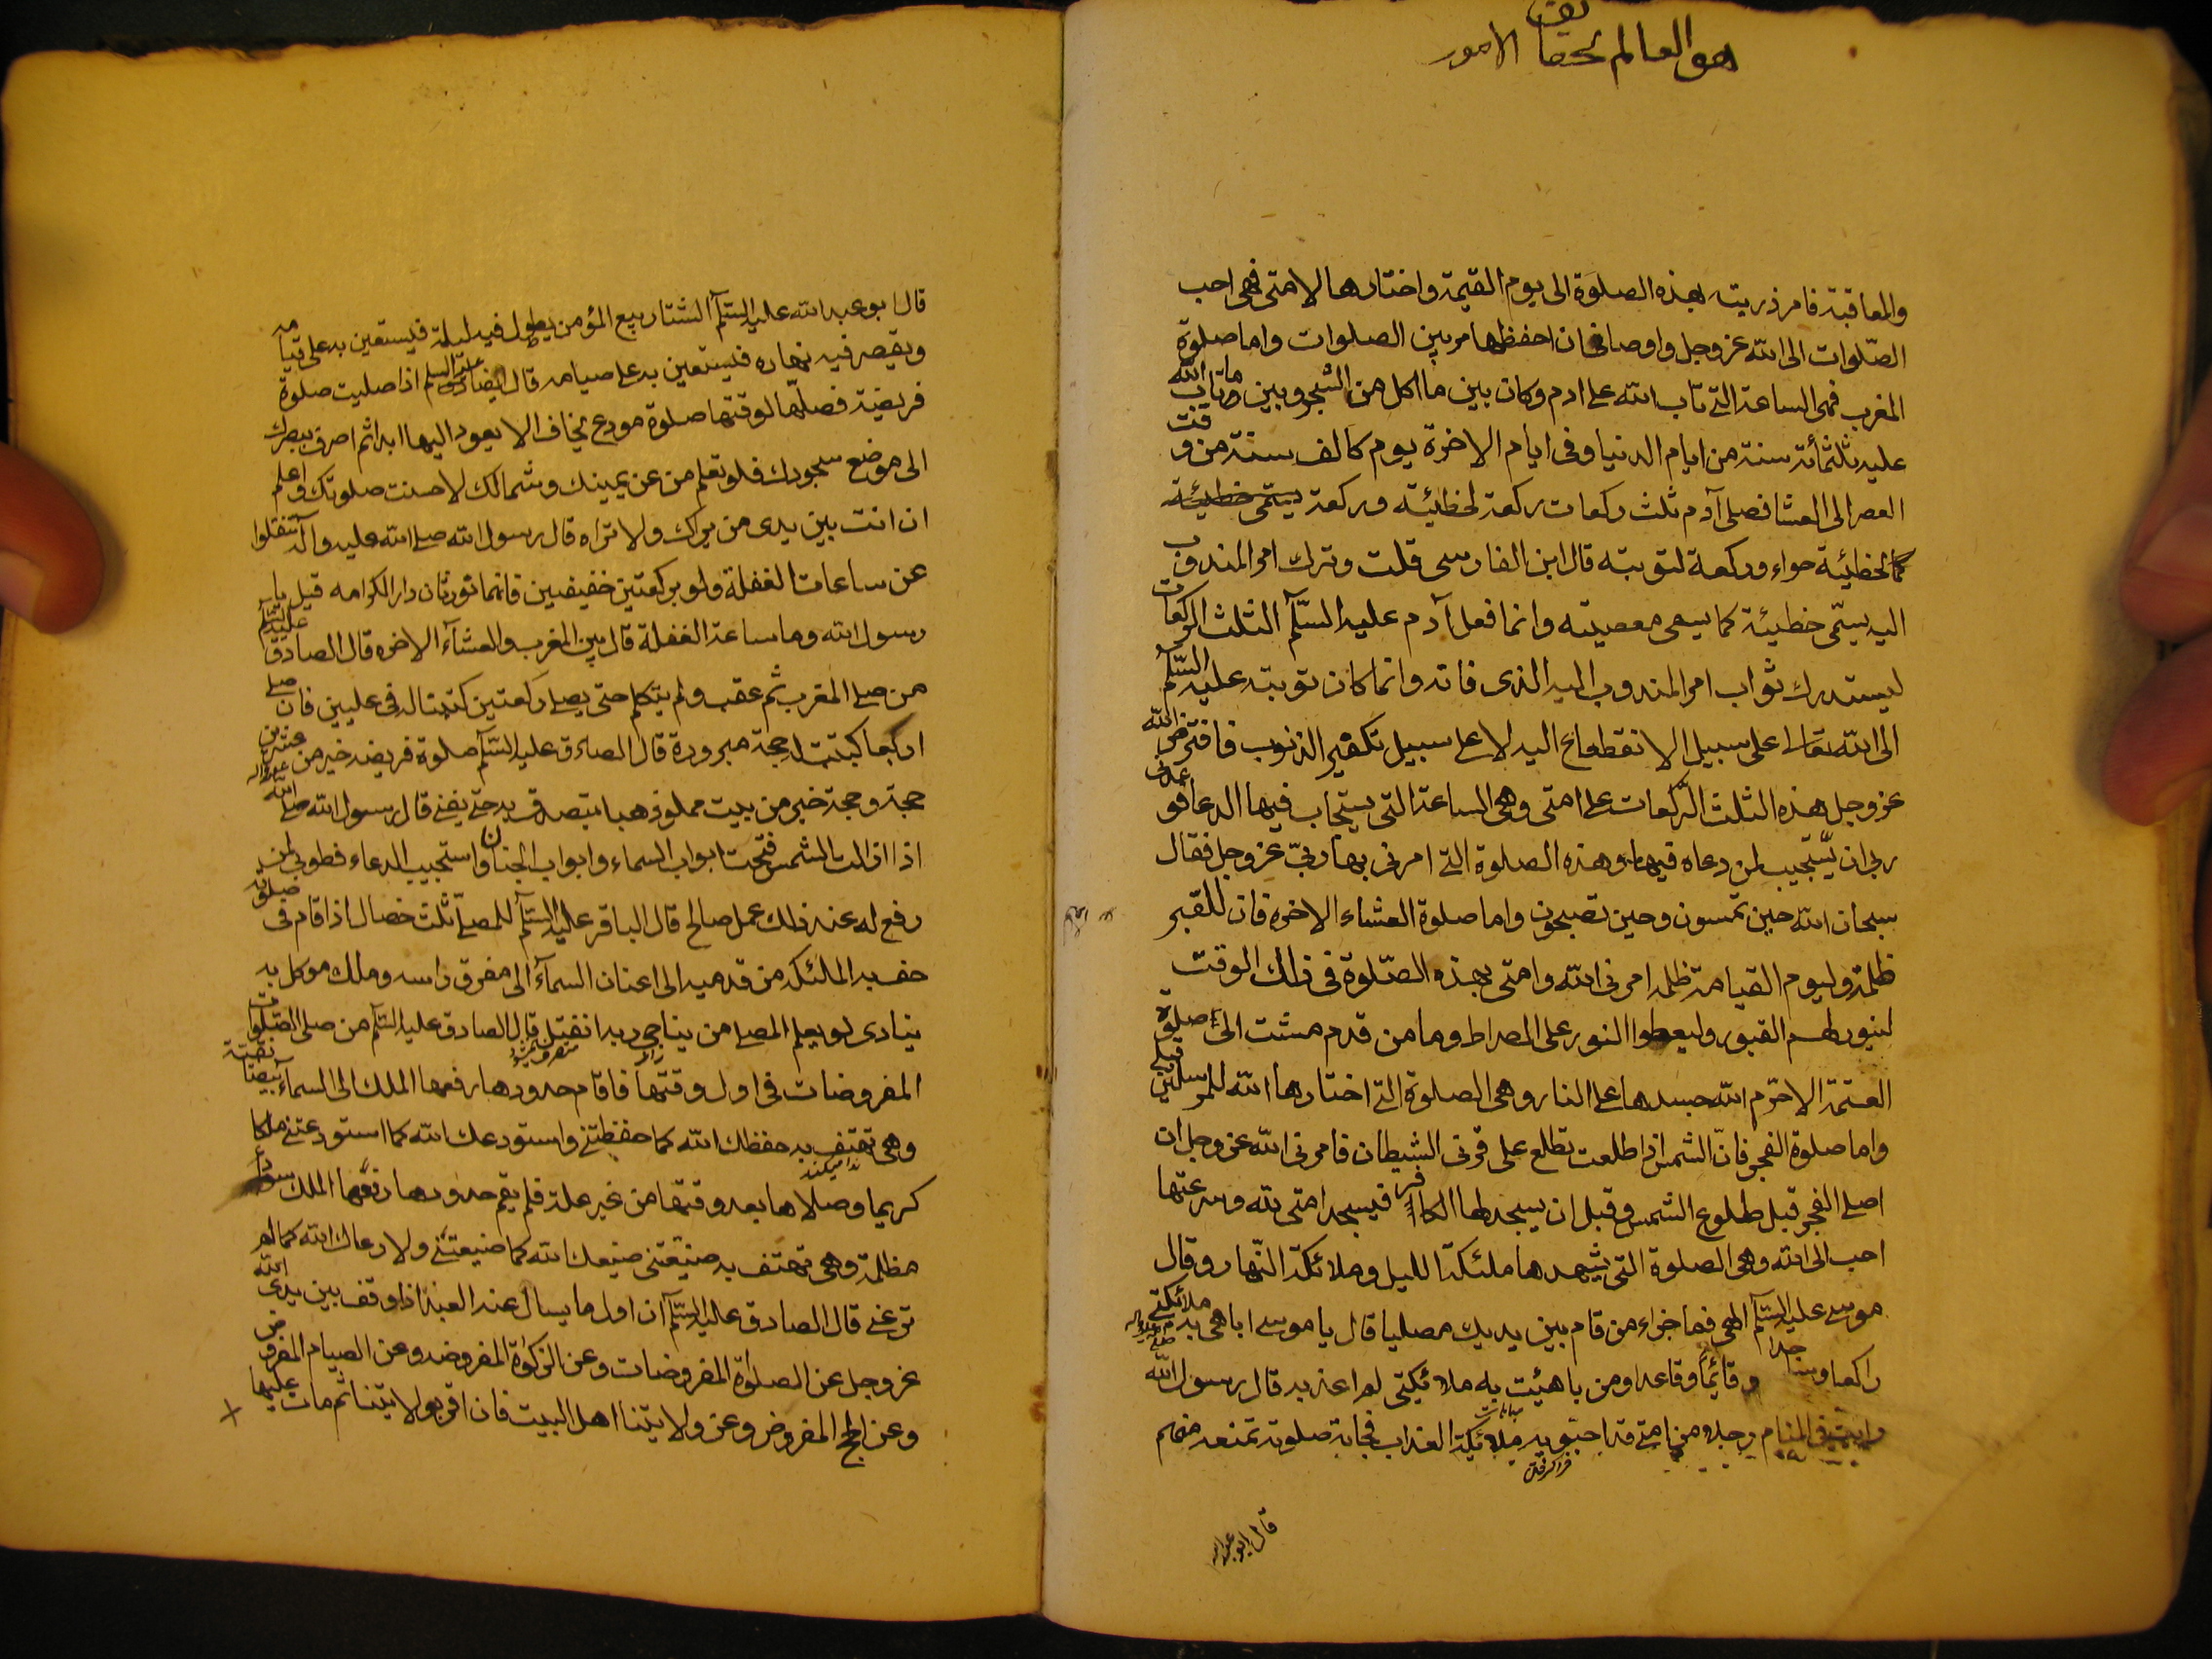 هو العالم بحقائق الامور
والمعاقبة فامر ذريته بهذه الصلوة الى يوم القيمة واختارها لامتى فهى احب
الصّلوات الى الله عز وجل واوصانى ان احفظها من بين الصلوات واما صلوة
المغرب فهى الساعة التى تاب الله على ادم وكان بين ما اكل من الشجر وبين ما تاب الله
عليه ثلثمأته سنة من ايام الدنيا وفى ايام الاخرة يوم كالف سنة من وقت
العصر الى العشا فصلى آدم ثلث ركعات ركعة لخطائيته وركعة
لخطائية حواء وركعة لتوبته قال ابن الفارسى قلت وترك امر المندوب
اليه يسّمى خطيئة كما يسمى معصيته وانما فعل آدم عليه السّلم الثلث الركعات
ليستدرك ثواب امر المندوب اليه الذى فاته وانما كان توبته عليه السّلم
الى الله تعالى على سبيل الانقطاع اليه لا على سبيل تكفير الذنوب فافترض الله
عز وجل هذه الثلث الرّكعات على امتى وهى الساعة التى يستجاب فيها الدعا فوعدنى
ربى ان يستجيب لمن دعاه فيها وهذه الصلوة التى امرنى بها ربّى عز وجل فقال
سبحان الله حين تمسون وحين تصبحون واما صلوة العشاء الاخره فان للقبر
ظلمة وليوم القيامة ظلمة امرنى الله وامتى بهذه الصّلوة فى ذلك الوقت
لينور لهم القبور وليعطوا النور على الصراط وما من قدم مشت الى صلوة
العتمة الا حرّم الله جسدها على النار وهى الصلوة التى اختارها الله للمرسلين قبلى
واما صلوة الفجر فانّ الشمس اذا طلعت تطلع على قرنى الشيطان فامرنى الله عز وجل ان
اصلى الفجر قبل طلوع الشمس وقبل ان يسجد لها الكافر فيسجد امتى لله وسرعتها
احب الى الله وهى الصلوة التى يشهدها ملئكة الليل وملائكة النّهار وقال
موسى عليه السّلم الهى فما جزاء من قام بين يديك مصليا قال يا موسى اباهى به ملائكتى
راكعا وساجدا وقائماً وقاعدا ومن باهيت به ملائكتى لم اعذبه قال رسول الله صلى الله عليه واله
رايت فى المنام رجلا من امتى قد احتبو به ملائكة العذاب فجائة صلوته تمنعه منهم
قال ابو عبد الله
قال ابو عبد الله عليه السّلم الشتا ربيع المؤمن يطول فيه ليله فيستعين به على قيامه
ويقصر فيه نهاره فيستعين به على صيامه قال الصادق عليه السلم اذا صليت صلوة
فريضة فصلّها لوقتها صلوة مودع يخاف الا يعود اليها ابدا ثم اصرف ببصرك
الى موضع سجودك فلو تعلم من عن يمينك وشمالك لاحسنت صلوتك واعلم
ان انت بين يدى من يراك ولا تراه قال رسول الله صلى الله عليه واله تنفلوا
عن ساعات الغفلة ولو بركعتين خفيفين فانهما تورثان دار الكرامه قيل يا
رسول الله وما ساعة الغفلة قال بين المغرب والعشآء الاخره قال الصادق عليه السّلم
من صلى المغرب ثم عقب ولم يتكلم حتى يصلى ركعتين كتبتا له فى عليين فان صلى
اربعا كتبت له حجة مبرورة قال الصادق عليه السّلم صلوة فريضه خير من عشرين
حجة وحجة خير من بيت مملو ذهبا يتصدق به حتى يفنى قال رسول الله صلى الله عليه واله
اذا زالت الشمس فتحت ابواب السماء وابواب الجنان واستجيب الدعاء فطوبى لمن
رفع له عند ذلك عمل صالح قال الباقر عليه السّلم للمصلّى ثلث خصال اذا قام فى صلوته
حف به الملئكه من قدميه الى اعنان السمآء الى مفرق راسه وملك موكل به
ينادى لو يعلم المصلى من يناجى ربه ما انفتل قال الصادق عليه السّلم من صلى الصّلوات
المفروضات فى اول وقتها فاقام حدودها رفعها الملك الى السمآء بيضآء نقيّة
وهى تهتف به حفظك الله كما حفظتنى واستودعك الله كما استودعتنى ملكا
كريما وصلاها بعد وقتها من غير علة فلم يقم حدودها رفعها الملك سودآء
مظلمة وهى تهتف به ضيعتنى ضيعك الله كما ضيعتنى ولا رعاك الله كما لم
ترعنى قال الصادق عليه السّلم ان اول ما يسال عنه العبد اذا وقف بين يدى الله
عز وجل عن الصلوة المفروضات وعن الزكوة المفروضه وعن الصيام المفروض
وعن الحج المفروض وعن ولايتنا اهل البيت فان اقر بولايتنا ثم مات عليها